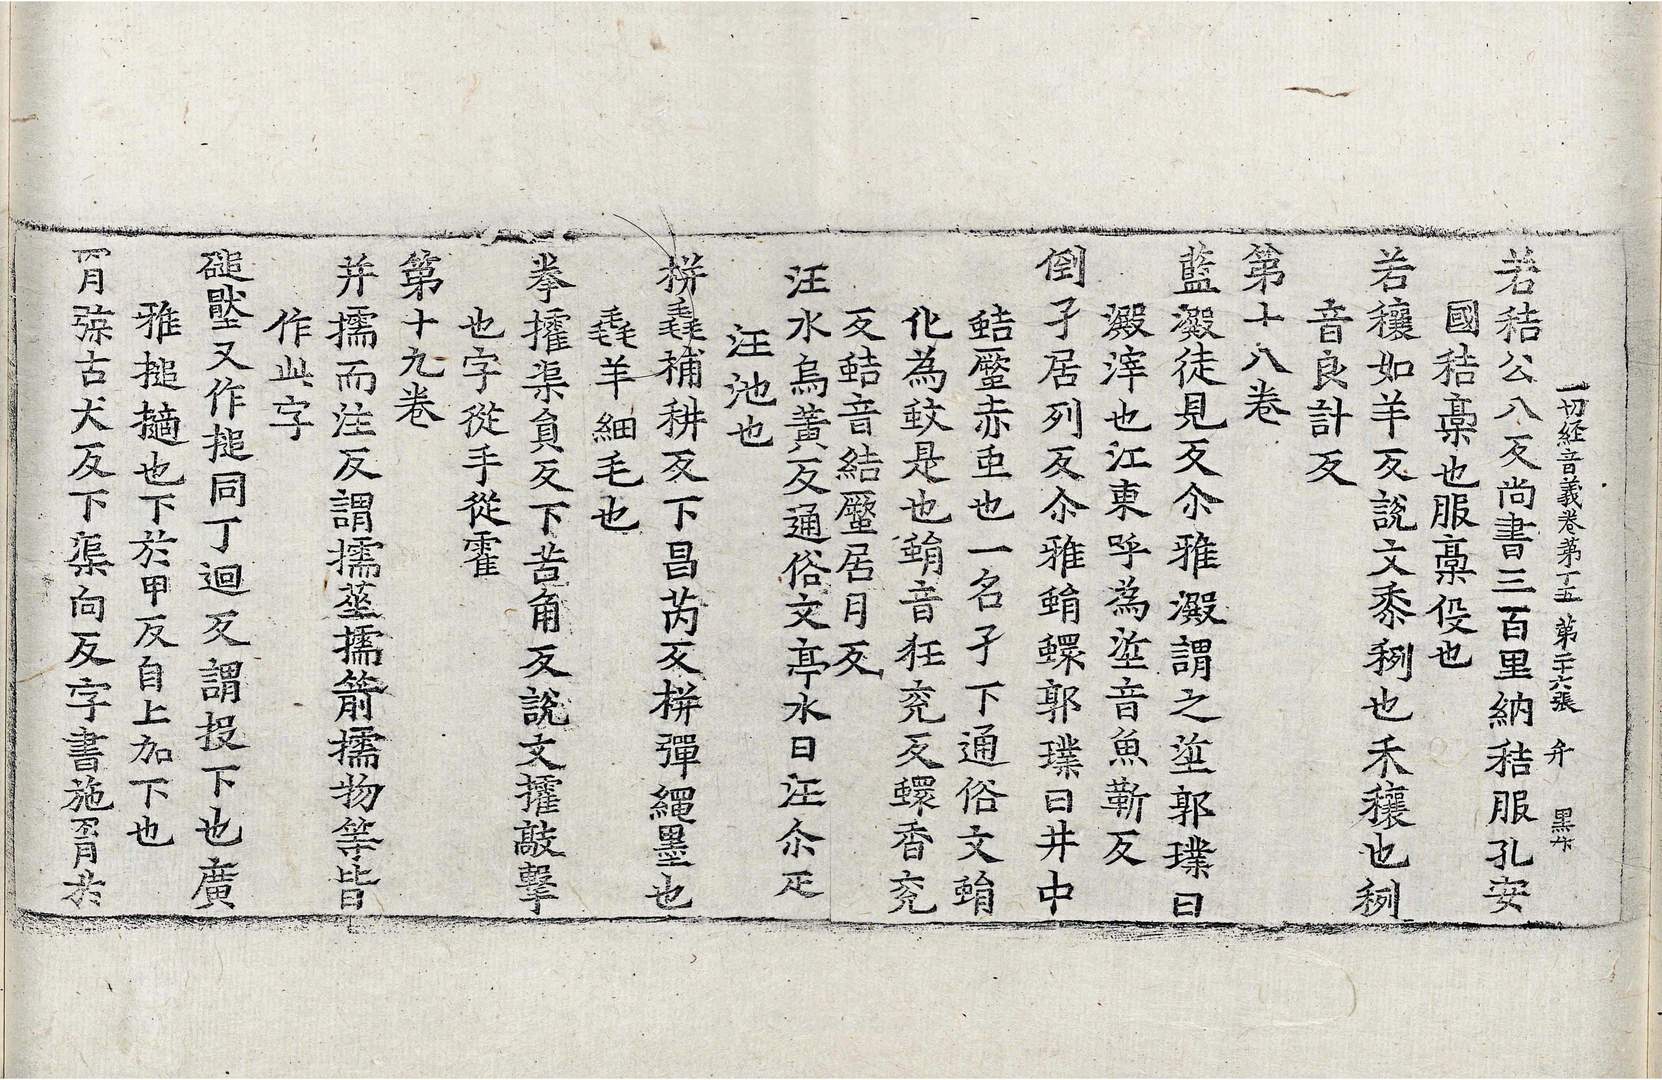 一切経音義卷第十五 第二十六張 弁 黒牛
若秸公八反尚書三百里納秸服孔安
國秸稾也服稾役也
若穰如羊反說文黍䅀也禾穰也䅀
音良計反
第十八卷
藍澱徒見反尒雅澱謂之垽郭璞曰
澱滓也江東呼為垽音魚靳反
倒孑居列反尒雅蜎蠉郭璞曰井中
蛣蟩赤虫也一名孑下通俗文蜎
化為蚊是也蜎音狂兖反蠉香兖
反蛣音結蟩居月反
汪水烏黃反通俗文亭水曰汪尒疋
汪池也
栟毳補耕反下昌芮反栟彈繩墨也
毳羊細毛也
拳㩁渠負反下苦角反說文㩁敲擊
也字從手從霍
第十九卷
并擩而注反謂擩莝擩箭擩物等皆
作此字
磓壓又作搥同丁迴反謂投下也廣
雅搥擿也下於甲反自上加下也
罥弶古犬反下渠向反字書施罥於